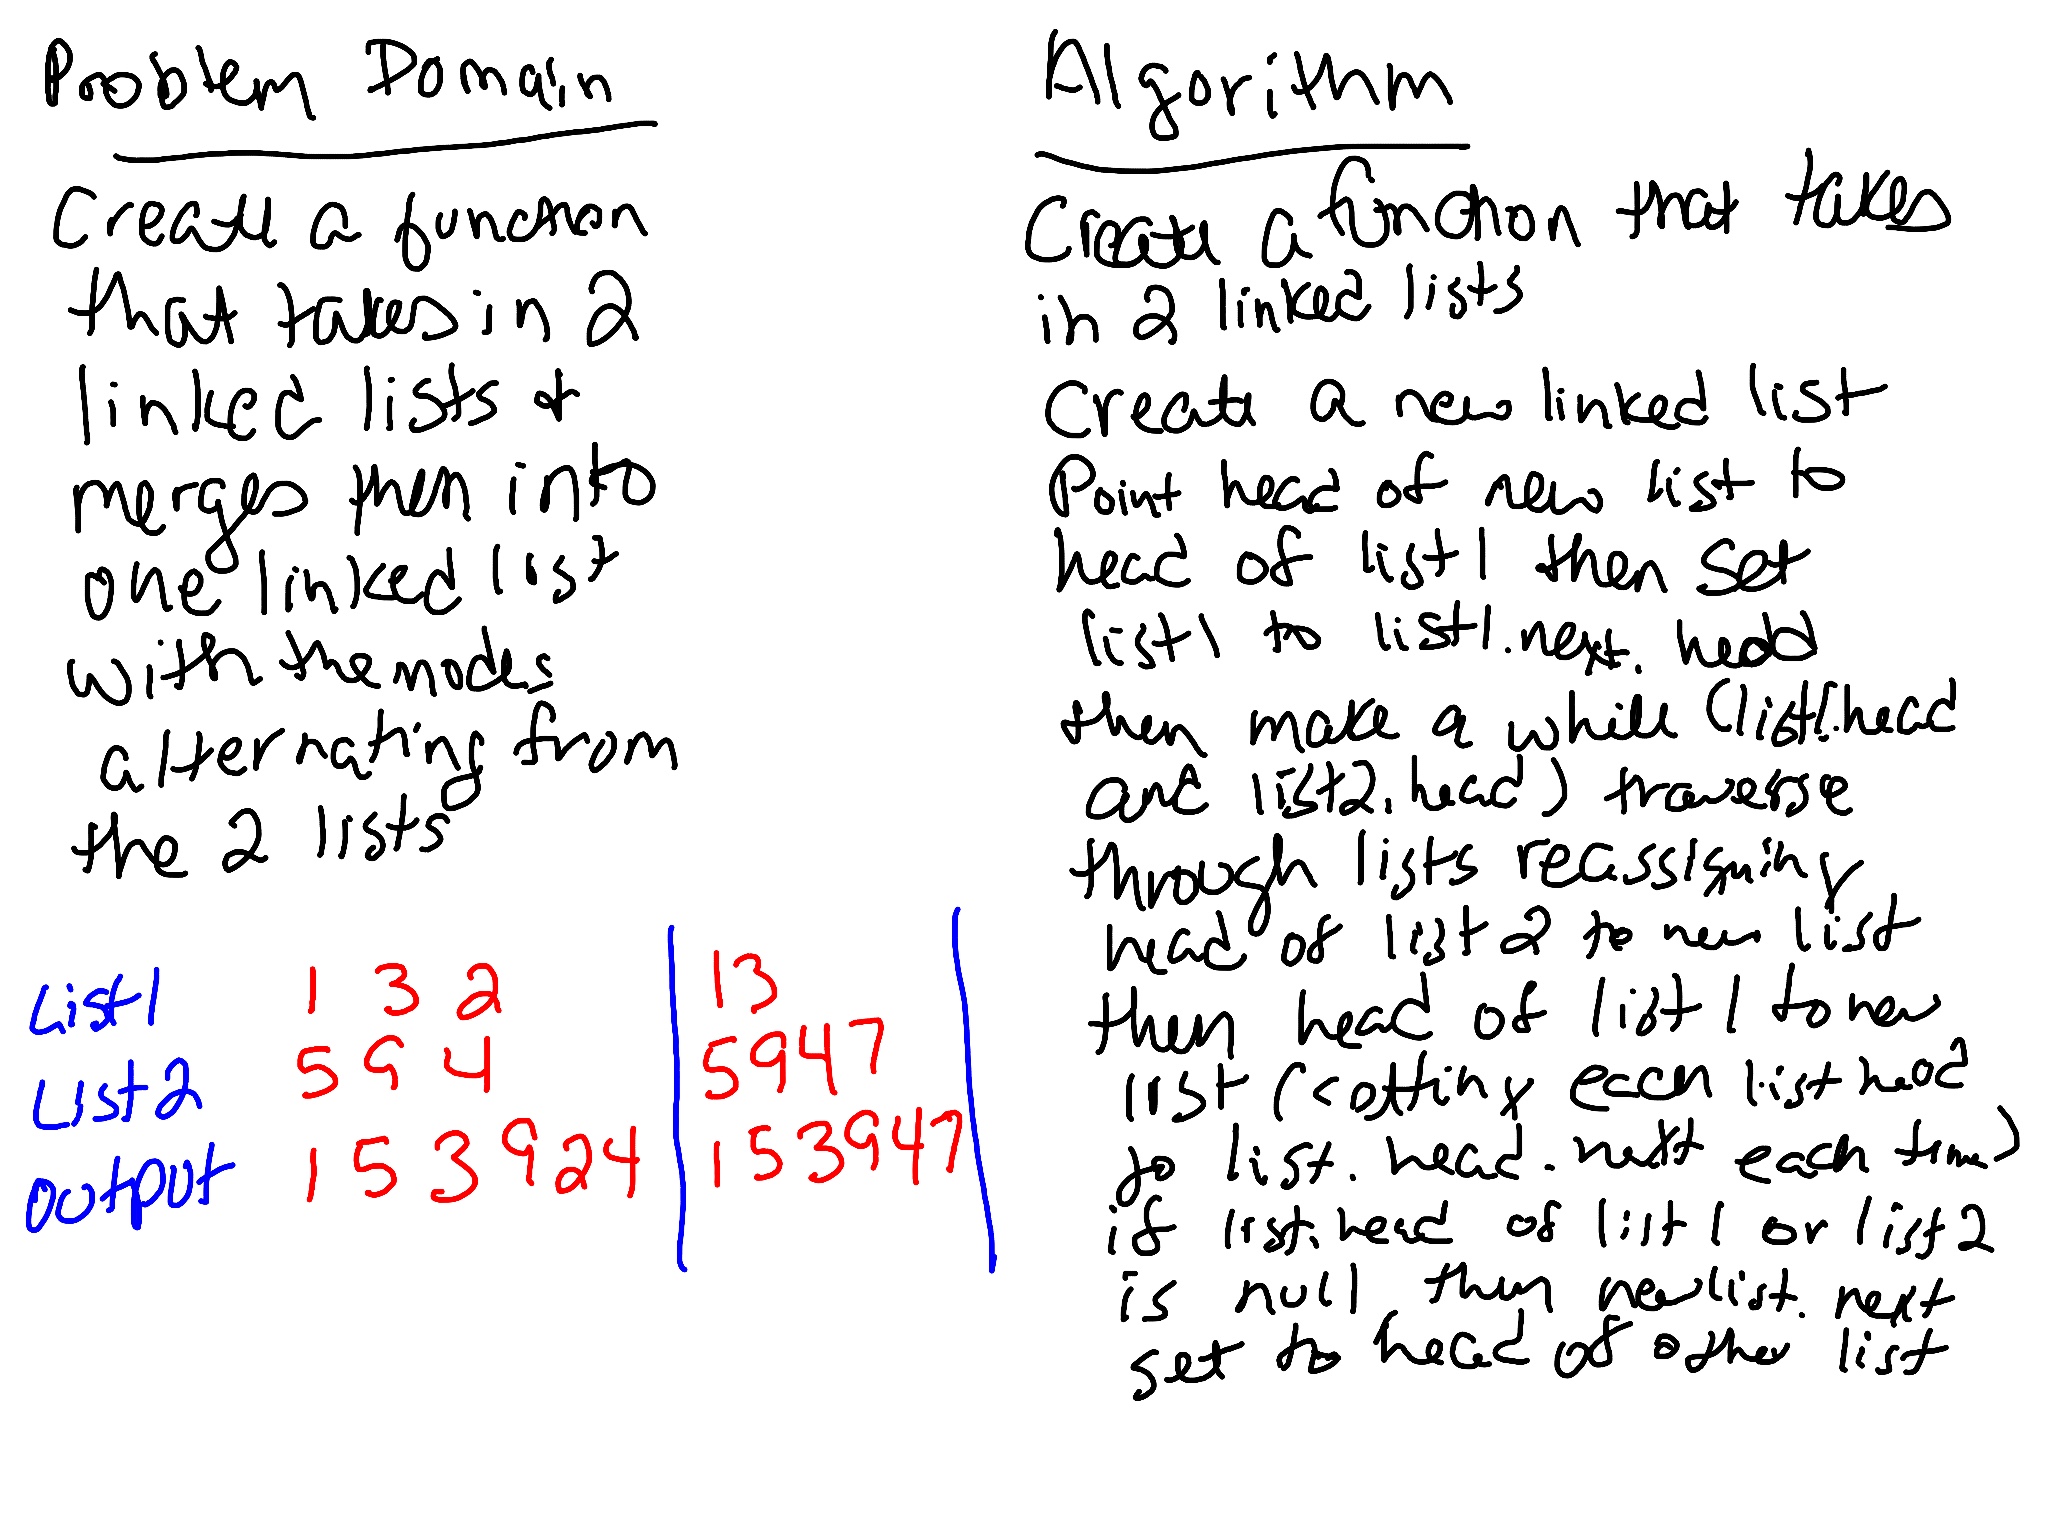 Problem Domain
Create a function
that takes in 2
linked lists &
merges then into
one linked list
with the nodes
alternating from
the 2 lists
List1 1 3 2 | 13 |
List2 5 9 4 | 5947 |
output 1 5 3 9 24 | 153947 |
Algorithm
Create a function that takes
in 2 linked lists
Create a new linked list
Point head of new list to
head of list1 then set
list1 to list1.next.head
then make a while (list1.head
and list2.head) traverse
through lists reassigning
head of list2 to new list
then head of list1 to new
list ( each list head
to list.head.next each time)
if list.head of list1 or list2
is null then newlist.next
set to head of other list